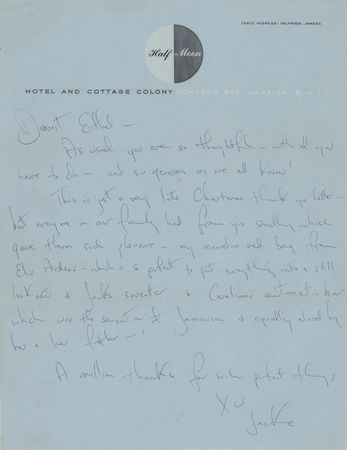 CABLE ADDRESS: HALFMOON, JAMAICA
Half Moon
HOTEL AND COTTAGE COLONY MONTEGO BAY · JAMAICA · B.W.I.
Dearest
As usual you are so thoughtful – with all you
have to do – and so generous as we all know!
This is just a very late Christmas thank you letter –
but everyone in our family had from you something which
gave them such pleasure – my marvelous red bag from
Eliz Arden – which is so perfect to put everything into & still
look neat & Jack's sweater & Caroline's automatic bear
which was the sensation of Jamaica & equally adored by
her & her father – !
A million thanks for such perfect things
XO
Jackie